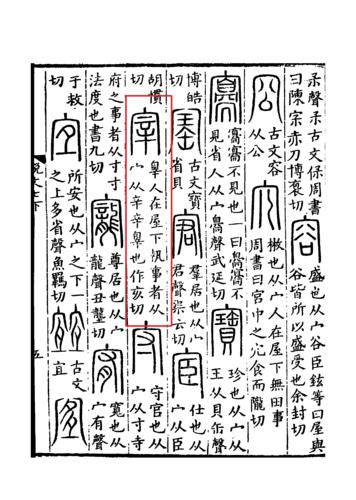 㺿聲㺿古文保周書曰陳宗赤刀博袌切 容 盛也从宀谷臣鉉等曰屋與谷皆所以盛受也余封切
古文容从公 宂 㪔也从宀人在屋下無田事周書曰宮中之宂食而隴切
㝰 㝰㝰不見也一曰㝰㝰不見省人从宀㝰聲武延切 寶 珍也从宀从王从貝缶聲
博皓切 古文寶省貝 宭 羣居也从宀君聲渠云切 宦 仕也从宀从臣
胡慣切 宰 辠人在屋下執事者从宀从辛辛辠也作亥切 守 守官也从宀从寸寺
府之事者从寸寸法度也書九切 寵 尊居也从宀龍聲丑壟切 宥 寬也从宀有聲
于救切 宐 所安也从宀之下一之上多省聲魚羈切 古文宜
說文七下 五